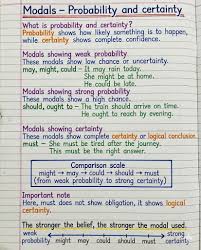 Modals – Probability and certainty
What is probability and certainty?
Probability shows how likely something is to happen,
while certainty shows complete confidence.
Modals showing weak probability
These modals show low chance or uncertainty.
may, might, could – It may rain today.
She might be at home.
He could be late.
Modals showing strong probability
These modals show a high chance.
should, ought to – The train should arrive on time.
He ought to reach by evening.
Modals showing certainty
These modals show complete certainty or logical conclusion.
must – She must be tired after the journey.
This must be the right answer.
Comparison scale
might → may → could → should → must
(from weak probability to strong certainty)
Important note
Here, must does not show obligation, it shows logical
certainty.
The stronger the belief, the stronger the modal used.
weak strong
probability might may could should must certainty